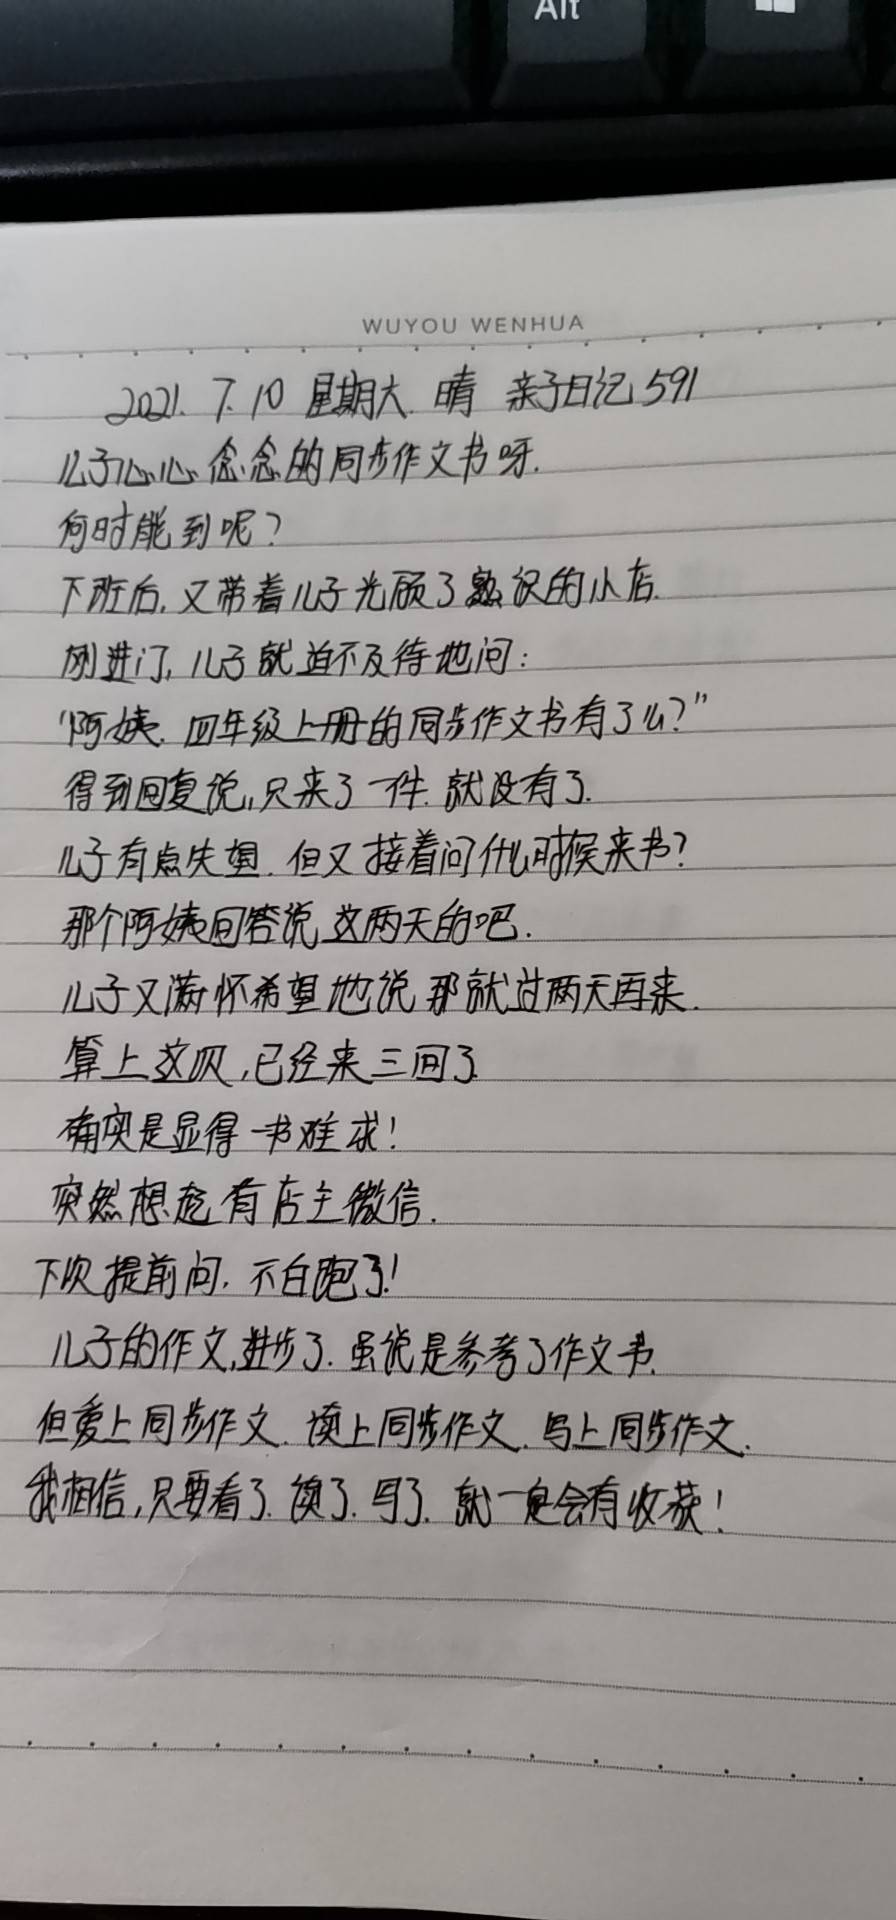 Alt
WUYOU WENHUA
2021.7.10 星期六 晴 亲子日记591
儿子心心念念的同步作文书呀.
何时能到呢?
下班后,又带着儿子光顾了熟识的小店.
刚进门,儿子就迫不及待地问:
"阿姨.四年级上册的同步作文书有了么?"
得到回复说,只来了一件.就没有了.
儿子有点失望.但又接着问什么时候来书?
那个阿姨回答说这两天的吧.
儿子又满怀希望地说那就过两天再来.
算上这次,已经来三回了
确实是显得一书难求!
突然想起有店主微信.
下次提前问.不白跑了!
儿子的作文,进步了.虽说是参考了作文书.
但爱上同步作文.读上同步作文.写上同步作文.
我相信,只要看了.读了.写了.就一定会有收获!